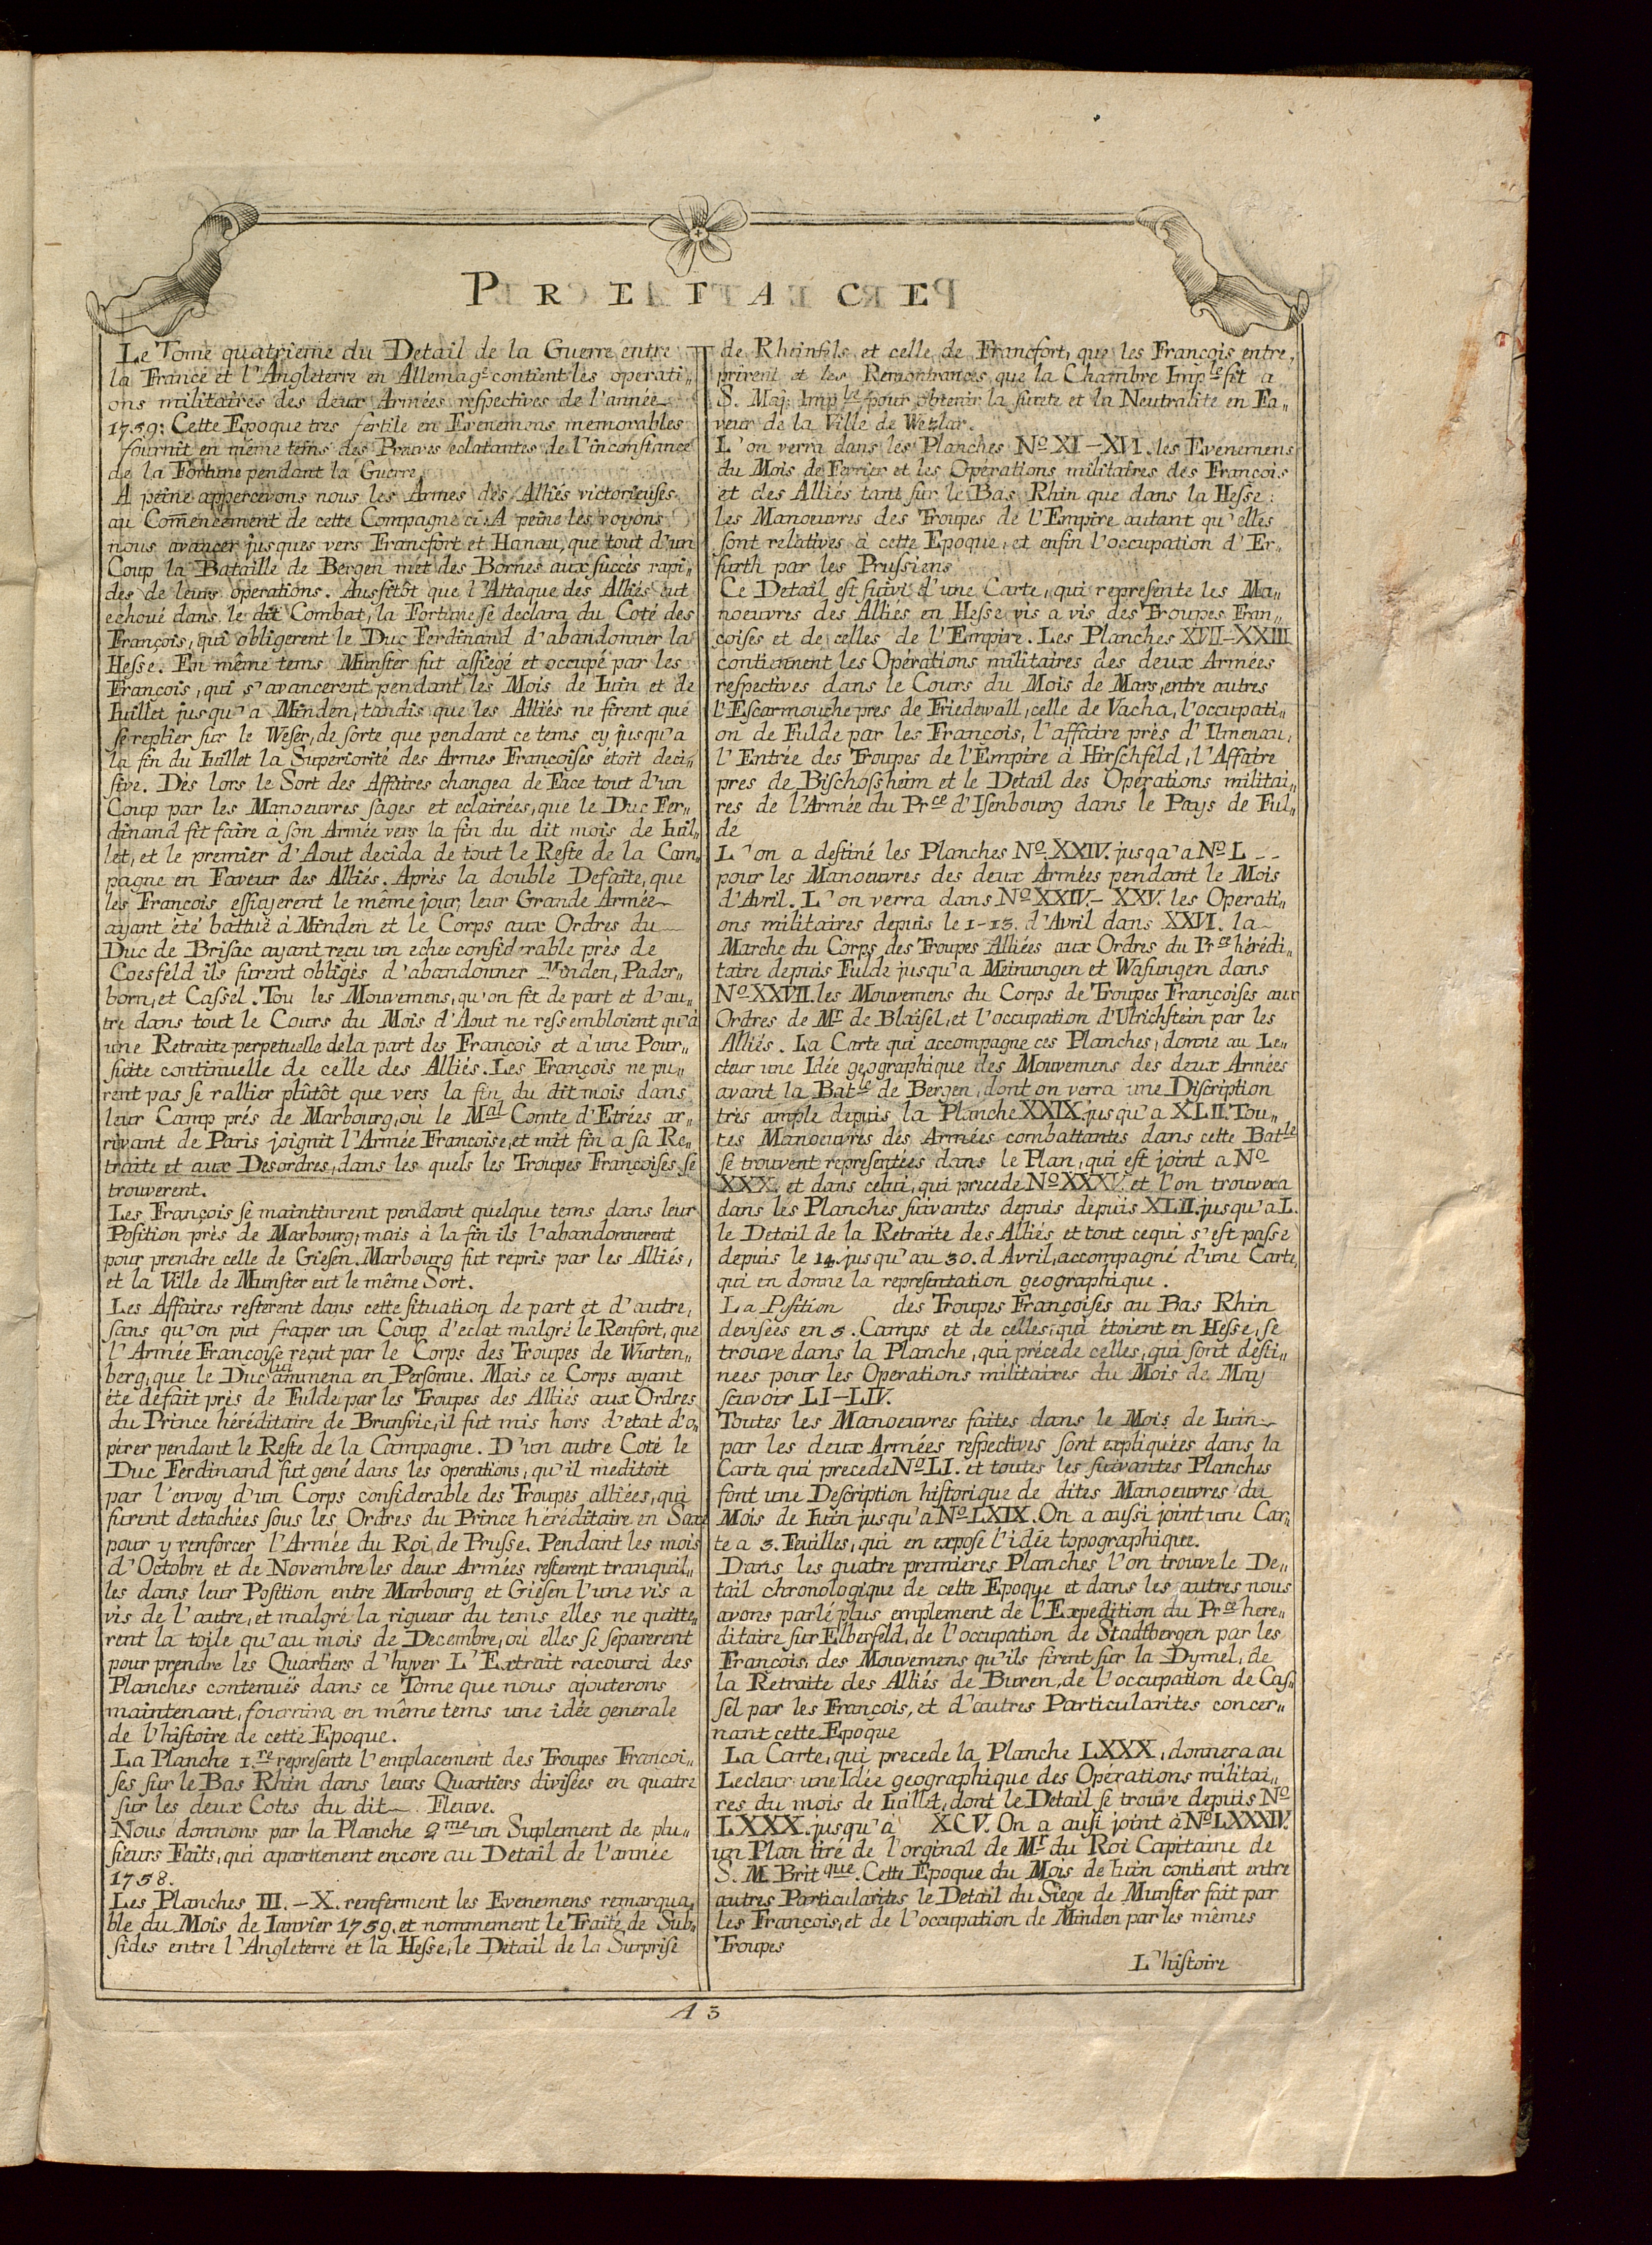 PREFACE
Le Tome quatrieme du Detail de la Guerre entre
la France et l'Angleterre en Allemag.e contient les operati„
ons militaires des deux Armées respectives de l'année
1759: Cette Epoque tres fertile en Evenemens memorables
fournit en même tems des Preuves eclatantes de l'inconstance
de la Fortune pendant la Guerre
A peine appercevons nous les Armes des Alliés victorieuses
au Com̄encement de cette Compagne ci: A peine les voyons
nous avancer jusques vers Francfort et Hanau, que tout d'un
Coup la Bataille de Bergen met des Bornes aux succès rapi„
des de leurs operations. Aussitôt que l'Attaque des Alliés eut
echoué dans le dit Combat, la Fortune se declara du Coté des
François, qui obligerent le Duc Ferdinand d'abandonner la
Hesse. En même tems Munster fut assiegé et occupé par les
François, qui s'avancerent pendant les Mois de Iuin et de
Iuillet jusqu'a Minden, tandis que les Alliés ne firent que
se replier sur le Weser, de sorte que pendant ce tems cy jusqu'a
la fin du Iuillet la Superiorité des Armes Françoises étoit deci„
sive. Dès lors le Sort des Affaires changea de Face tout d'un
Coup par les Manoeuvres sages et eclairées, que le Duc Fer„
dinand fit faire à son Armée vers la fin du dit mois de Iuil„
let, et le premier d'Aout decida de tout le Reste de la Cam„
pagne en Faveur des Alliés. Après la double Defaite, que
les François essuyerent le même jour, leur Grande Armée
ayant été battuë à Minden et le Corps aux Ordres du
Duc de Brisac ayant reçu un echec considerable près de
Coesfeld ils furent obligés d'abandonner Minden, Pader„
born, et Cassel. Tou les Mouvemens, qu'on fit de part et d'au„
tre dans tout le Cours du Mois d'Aout ne ressembloient qu'à
une Retraite perpetuelle dela part des François et à une Pour„
suite continuelle de celle des Alliés. Les François ne pu„
rent pas se rallier plûtôt que vers la fin du dit mois dans
leur Camp prés de Marbourg, où le Mal Comte d'Etrées ar„
rivant de Paris joignit l'Armée Francoise, et mit fin a sa Re„
traite et aux Desordres, dans les quels les Troupes Françoises se
trouverent.
Les François se maintinrent pendant quelque tems dans leur
Position près de Marbourg, mais à la fin ils l'abandonnerent
pour prendre celle de Giesen. Marbourg fut repris par les Alliés,
et la Ville de Munster eut le même Sort.
Les Affaires resterent dans cette situation de part et d'autre,
sans qu'on put fraper un Coup d'eclat malgré le Renfort, que
l'Armée Francoise reçut par le Corps des Troupes de Wurten„
berg, que le Duc lui ammena en Personne. Mais ce Corps ayant
été défait près de Fulde par les Troupes des Alliés aux Ordres
du Prince héréditaire de Brunsvic, il fut mis hors d'etat d'o„
pérer pendant le Reste de la Campagne. D'un autre Coté le
Duc Ferdinand fut gené dans les operations, qu'il meditoit
par l'envoy d'un Corps considerable des Troupes alliées, qui
furent detachées sous les Ordres du Prince héréditaire en Saxe
pour y renforcer l'Armée du Roi de Prusse. Pendant les mois
d'Octobre et de Novembre les deux Armées resterent tranquil„
les dans leur Position entre Marbourg et Giesen l'une vis a
vis de l'autre, et malgré la rigueur du tems elles ne quitte„
rent la toile qu'au mois de Decembre, où elles se separerent
pour prendre les Quartiers d'hyver L'Extrait racourci des
Planches contenuës dans ce Tome que nous ajouterons
maintenant, fournira en même tems une idée generale
de l'histoire de cette Epoque.
La Planche 1.re represente l'emplacement des Troupes Françoi„
ses sur le Bas Rhin dans leurs Quartiers divisées en quatre
sur les deux Cotes du dit Fleuve.
Nous donnons par la Planche 2me un Suplement de plu„
sieurs Faits, qui apartienent encore au Detail de l'année
1758.
Les Planches III. – X. renferment les Evenemens remarqua„
ble du Mois de Ianvier 1759. et nommement le Traité de Sub„
sides entre l'Angleterre et la Hesse, le Detail de la Surprise
de Rheinfels et celle de Francfort, que les François entre„
prirent et les Remontrances que la Chambre Imp.le fit a
S. Maj: Imp.le pour obtenir la sureté et la Neutralité en Fa„
veur de la Ville de Wezlar.
L'on verra dans les Planches No XI – XVI. les Evenemens
du Mois de Fevrier et les Operations militaires des François
et des Alliés tant sur le Bas Rhin que dans la Hesse:
les Manoeuvres des Troupes de l'Empire autant qu'elles
sont relatives à cette Epoque, et enfin l'occupation d'Er„
furth par les Prussiens
Ce Detail est suivi d'une Carte, qui represente les Ma„
noeuvres des Alliés en Hesse vis a vis des Troupes Fran„
çoises et de celles de l'Empire. Les Planches XVII – XXIII
contiennent les Opérations militaires des deux Armées
respectives dans le Cours du Mois de Mars, entre autres
l'Escarmouche pres de Friedewall, celle de Vacha, l'occupati„
on de Fulde par les François, l'affaire près d'Ilmenau,
l'Entrée des Troupes de l'Empire à Hirschfeld, l'Affaire
pres de Bischofsheim et le Detail des Operations militai„
res de l'Armée du Prce d'Isenbourg dans le Pays de Ful„
de
L'on a destiné les Planches No. XXIV. jusqa'a No. L --
pour les Manoeuvres des deux Armées pendant le Mois
d'Avril. L'on verra dans No XXIV. – XXV. les Operati„
ons militaires depuis le 1 - 13. d'Avril dans XXVI. la
Marche du Corps des Troupes Alliées aux Ordres du Prce hérédi„
taire depuis Fulde jusqu'a Meinungen et Wasungen dans
No XXVII. les Mouvemens du Corps de Troupes Françoises aux
Ordres de Mr de Blaisel, et l'occupation d'Ulrichstein par les
Alliés. La Carte qui accompagne ces Planches, donne au Le„
cteur une Idée geographique des Mouvemens des deux Armées
avant la Batle de Bergen, dont on verra une Discription
très ample depuis la Planche XXIX. jusqu'a XLII. Tou„
tes Manoeuvres des Armées combattantes dans cette Batle
se trouvent representées dans le Plan, qui est joint a No
XXX. et dans celui, qui precede No XXXV. et l'on trouvera
dans les Planches suivantes depuis depuis XLII. jusqu'a L.
le Detail de la Retraite des Alliés et tout cequi s'est passé
depuis le 14. jusqu'au 30. d Avril, accompagné d'une Carte,
qui en donne la representation geographique.
La Position des Troupes Françoises au Bas Rhin
devisées en 5. Camps et de celles, qui étoient en Hesse, se
trouve dans la Planche, qui précede celles, qui sont desti„
nees pour les Operations militaires du Mois de May
scuvoir LI – LIV.
Toutes les Manoeuvres faites dans le Mois de Iuin
par les deux Armées respectives sont expliquées dans la
Carte qui precede No LI. et toutes les suivantes Planches
font une Description historique de dites Manoeuvres du
Mois de Iuin jusqu'a No LXIX. On a aussi joint une Car„
te a 3. Feuilles, qui en expose l'idée topographique.
Dans les quatre premieres Planches l'on trouve le De„
tail chronologique de cette Epoque et dans les autres nous
avons parlé plus emplement de l'Expedition du Prce here„
ditaire sur Elberfeld, de l'occupation de Stadtbergen par les
François, des Mouvemens qu'ils firent sur la Dymel, de
la Retraite des Alliés de Buren, de l'occupation de Cas„
sel par les François, et d'autres Particularites concer„
nant cette Epoque
La Carte, qui precede la Planche LXXX, donnera au
Lecteur une Idée geographique des Opérations militai„
res du mois de Iuillet, dont le Detail se trouve depuis No
LXXX. jusqu'à XCV. On a ausi joint à No LXXXIV.
un Plan tiré de l'orginal de Mr du Roi Capitaine de
S. M. Britque. Cette Epoque du Mois de Iuin contient entre
autres Particularites le Detail du Siege de Munster fait par
les François, et de l'occupation de Minden par les mêmes
Troupes
L'histoire
A 3